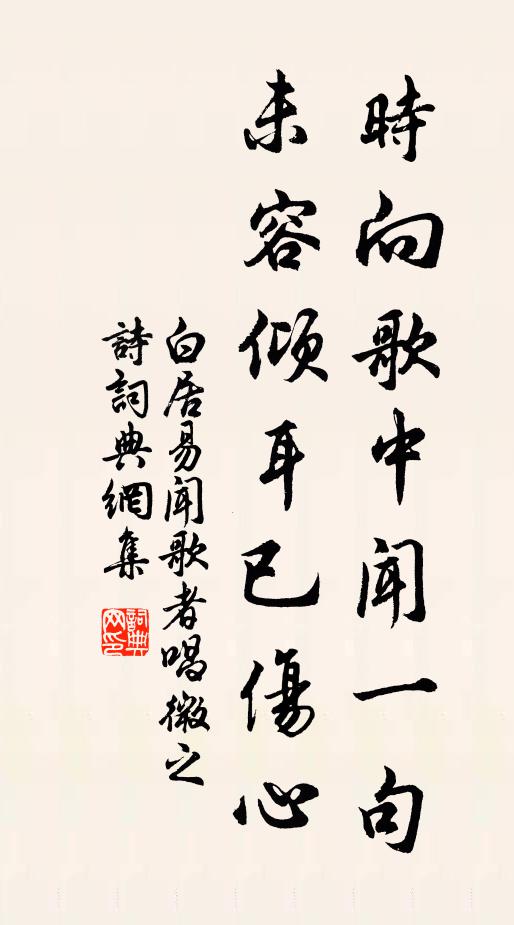 時向歌中聞一句
未容傾耳已傷心
白居易聞歌者唱微之
詩詞典網集
詞典
网印